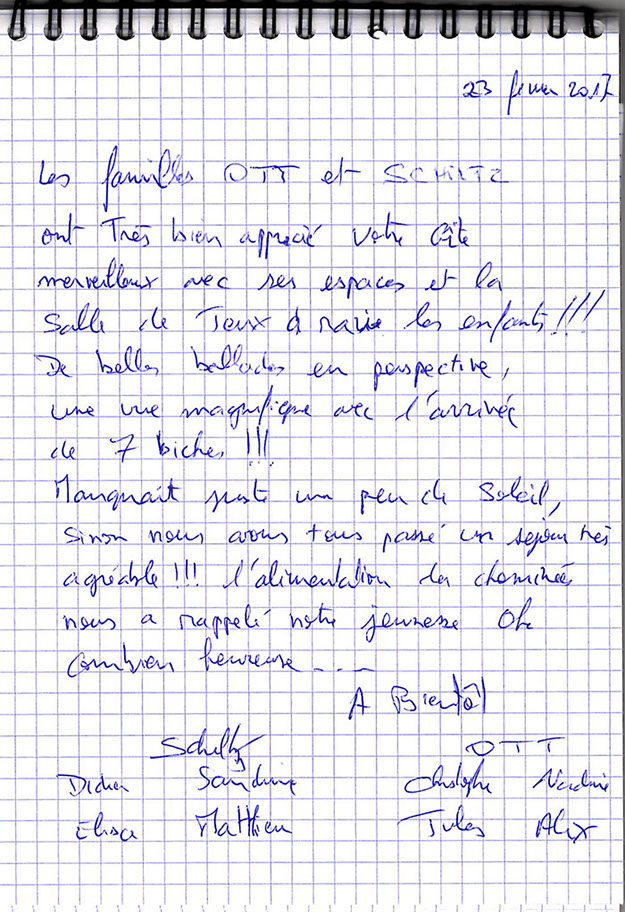 23 fevrier 2017
Les familles OTT et SCHILTZ
ont Très bien apprécié votre Gîte
merveilleux avec ses espaces et la
Salle de Jeux a ravie les enfants !!!
De belles ballades en perspective,
une vue magnifique avec l'arrivée
de 7 biches !!!
Manquait juste un peu de Soleil,
sinon nous avons tous passé un sejour très
agréable !!! l'alimentation des cheminées
nous a rappelé notre jeunesse Oh
combien heureuse ---
A Bientôt
Schiltz OTT
Didier Sandrine Christophe Nadine
Elisa Matthieu Jules Alix